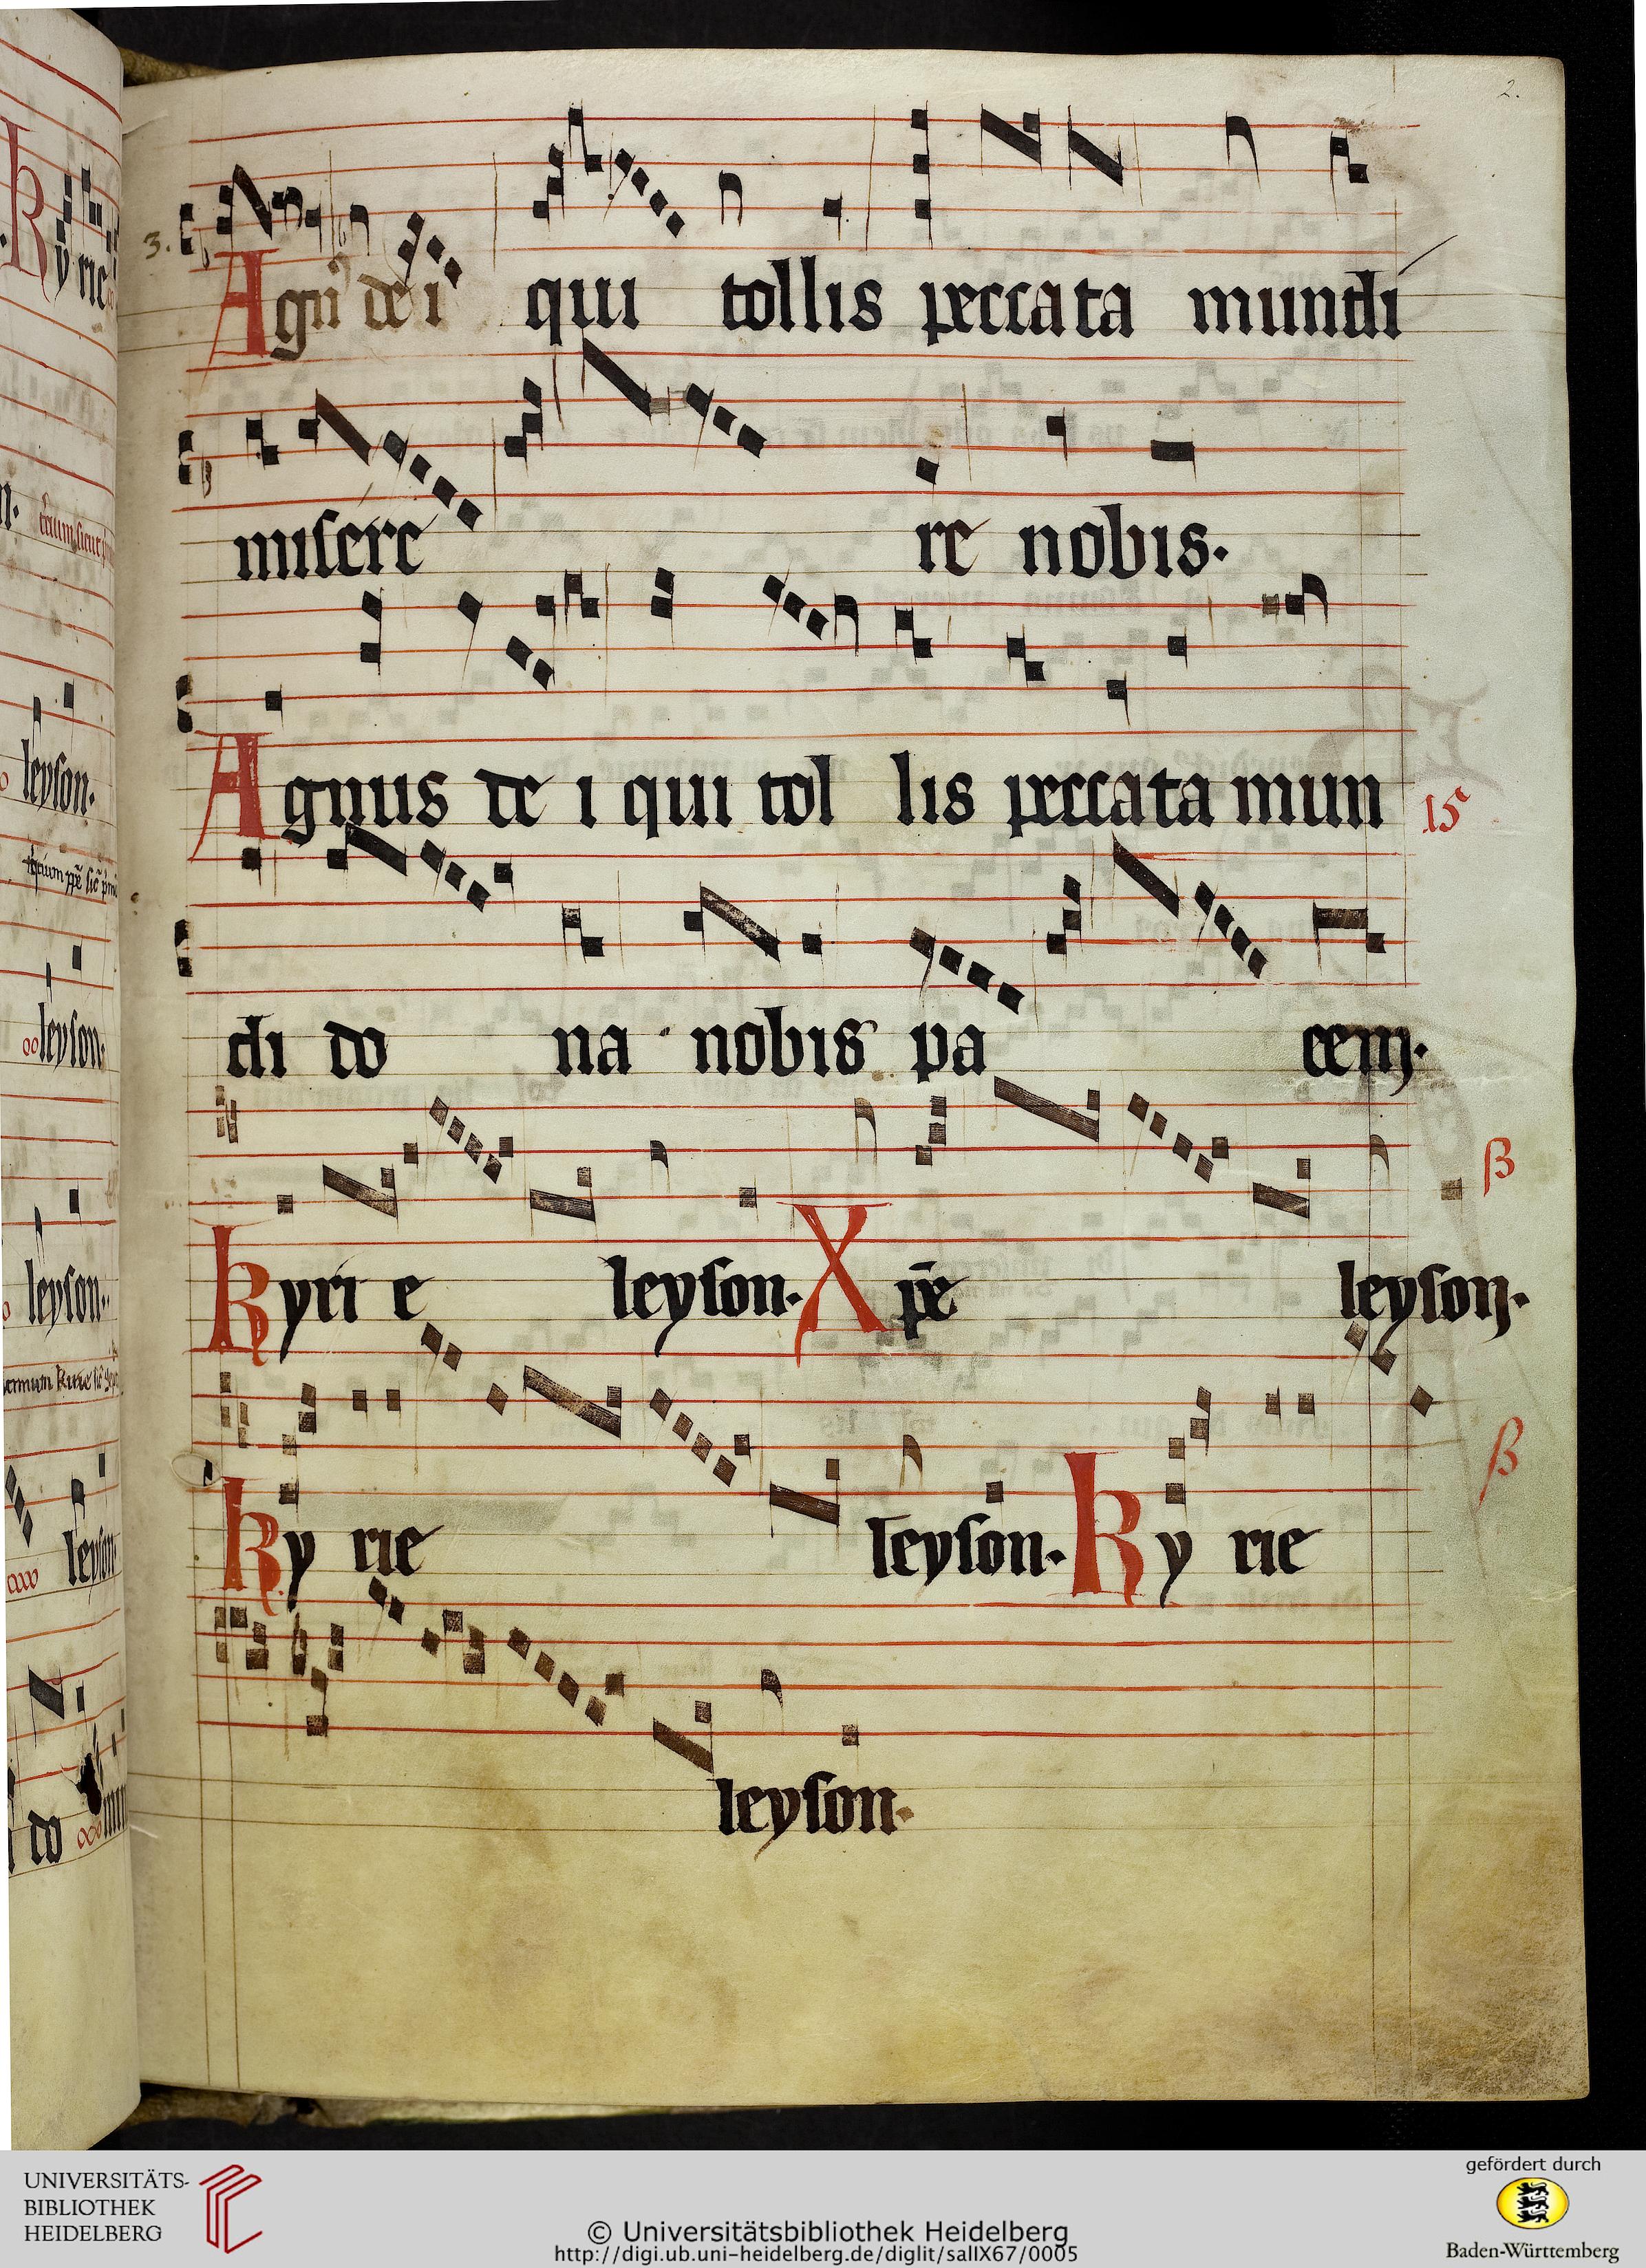 2.
3.
Agn᷒ de i qui tollis peccata mundi
miſere re nobis.
Agnus de i qui tol lis peccata mun
di do na nobis pa cem.
Kyri e leyſon. Xp̄e leyſon.
Ky rie leyſon. Ky rie
leyſon.
Ky rie
leyſon.
leyſon.
leyſon.
leyſon
do
UNIVERSITÄTS-
BIBLIOTHEK
HEIDELBERG
© Universitätsbibliothek Heidelberg
http://digi.ub.uni-heidelberg.de/diglit/salIX67/0005
gefördert durch
Baden-Württemberg